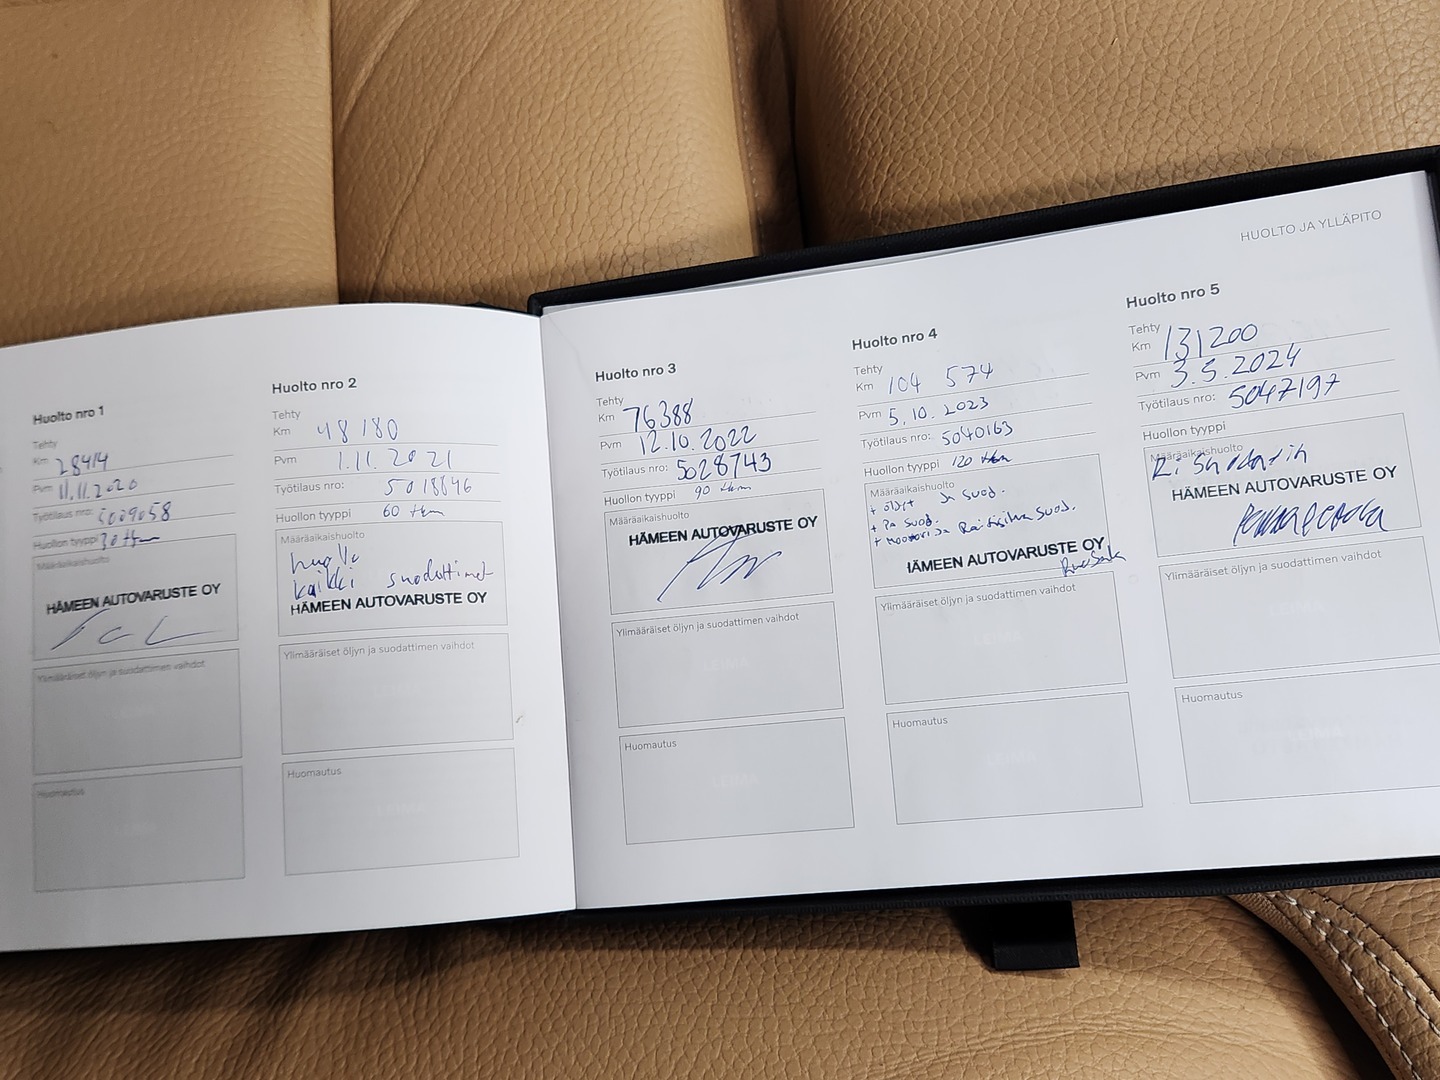 HUOLTO JA YLLÄPITO
Huolto nro 1
Tehty
Km 28414
Pvm 11.11.2020
Työtilaus nro: 5009058
Huollon tyyppi 30 tkm
Määräaikaishuolto
HÄMEEN AUTOVARUSTE OY
Ylimääräiset öljyn ja suodattimen vaihdot
Huomautus
Huolto nro 2
Tehty
Km 48180
Pvm 1.11.2021
Työtilaus nro: 5018846
Huollon tyyppi 60 tkm
Määräaikaishuolto
huolto
kaikki suodattimet
HÄMEEN AUTOVARUSTE OY
Ylimääräiset öljyn ja suodattimen vaihdot
LEIMA
Huomautus
LEIMA
Huolto nro 3
Tehty
Km 76388
Pvm 12.10.2022
Työtilaus nro: 5028743
Huollon tyyppi 90 tkm
Määräaikaishuolto
HÄMEEN AUTOVARUSTE OY
Ylimääräiset öljyn ja suodattimen vaihdot
LEIMA
Huomautus
LEIMA
Huolto nro 4
Tehty
Km 104 574
Pvm 5.10.2023
Työtilaus nro: 5040163
Huollon tyyppi 120 tkm
Määräaikaishuolto
+ öljyt ja suod.
+ Pa suod.
+ moottori ja Raitisilma suod.
HÄMEEN AUTOVARUSTE OY
Ylimääräiset öljyn ja suodattimen vaihdot
LEIMA
Huomautus
LEIMA
Huolto nro 5
Tehty
Km 131200
Pvm 3.5.2024
Työtilaus nro: 5047197
Huollon tyyppi
Määräaikaishuolto
HÄMEEN AUTOVARUSTE OY
Ylimääräiset öljyn ja suodattimen vaihdot
LEIMA
Huomautus
LEIMA